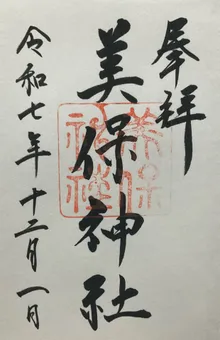 奉拝
美保神社
令和七年十二月一日
美保
神社